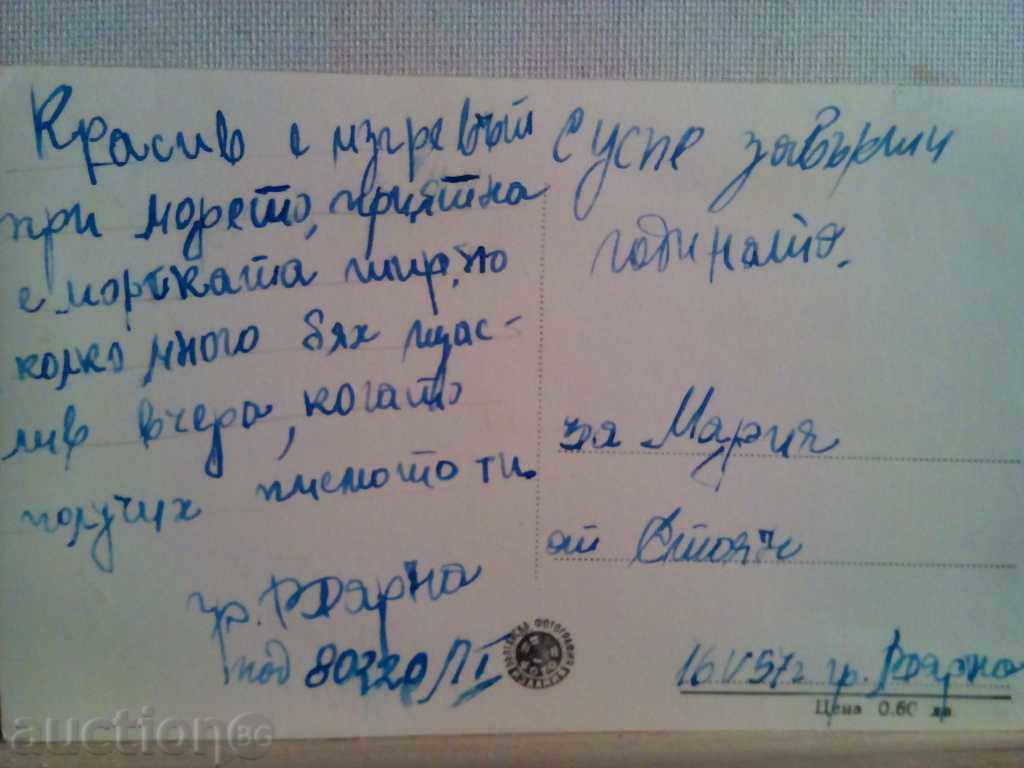 Красив е изгревът
при морето, приятна
е морската шир, но
колко много бях щас-
лив вчера, когато
получих писмото ти.
гр. Варна
под 80220/II
Успе завърши
годината.
за Мария
от Стоян
16 V 57 г гр. Варна
Цена 0.60 лв.
БЪЛГАРСКА ФОТОГРАФИЯ
auctionBG